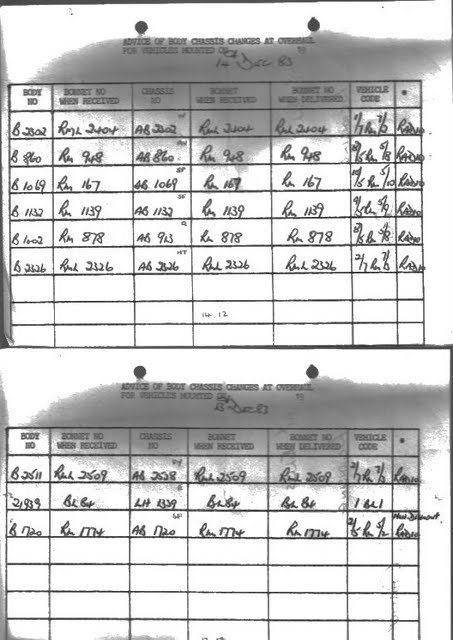 ADVICE OF BODY CHASSIS CHANGES AT OVERHAUL
FOR VEHICLES MOUNTED ON 19
14 Dec 83
BODY NO BONNET NO WHEN RECEIVED CHASSIS NO BONNET WHEN RECEIVED BONNET NO WHEN DELIVERED VEHICLE CODE
B 2302 RML 2404 AB 2302 RML 2404 RML 2404 RADIO
B 860 RM 948 AB 860 RM 948 RM 948 RADIO
B 1069 RM 167 AB 1069 SF RM 167 RM 167 RADIO
B 1132 RM 1139 AB 1132 RM 1139 RM 1139 RADIO
B 1002 RM 878 AB 913 Q RM 878 RM 878 RADIO
B 2326 RML 2326 AB 2326 HT RML 2326 RML 2326 2/7 RM 7/5 RADIO
14.12
ADVICE OF BODY CHASSIS CHANGES AT OVERHAUL
FOR VEHICLES MOUNTED ON 19
Dec 83
BODY NO BONNET NO WHEN RECEIVED CHASSIS NO BONNET WHEN RECEIVED BONNET NO WHEN DELIVERED VEHICLE CODE
B 2511 RML 2509 AB 2528 RML 2509 RML 2509 RADIO
21939 BL 84 LH 1339 BL 84 BL 84 1 BL 1
B 1720 RM 1774 AB 1720 SF RM 1774 RM 1774 RADIO